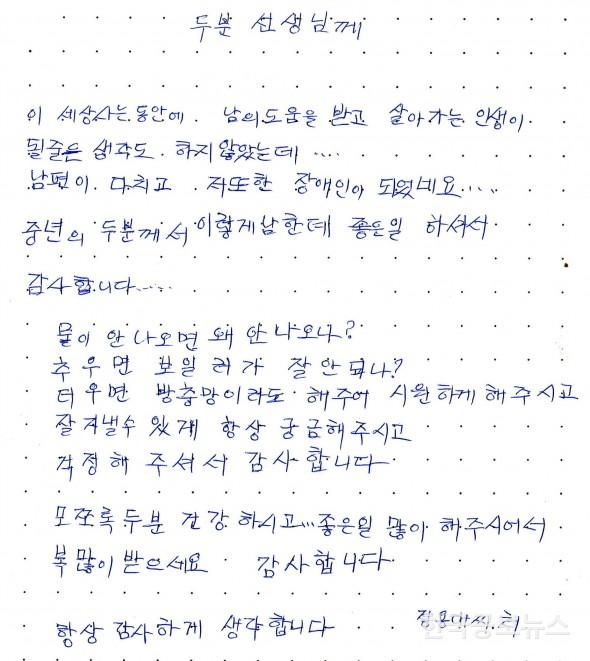 두분 선생님께
이 세상사는 동안에. 남의도움을 받고 살아가는 인생이
될줄은 생각도. 하지않았는데 ....
남편이. 다치고. 저또한 장애인이 되었네요....
중년의 두분께서 이렇게남한테 좋은일 하셔서
감사합니다.....
물이 안 나오면 왜 안 나오나?
추우면 보일러가 잘 안되나?
더우면 방충망이라도 해주어 시원하게 해주시고
잘지낼수 있게 항상 궁금해주시고
걱정해 주셔서 감사합니다
모쪼록 두분 건강하시고...좋은일 많이 해주시어서
복많이 받으세요 감사합니다
항상 감사하게 생각합니다